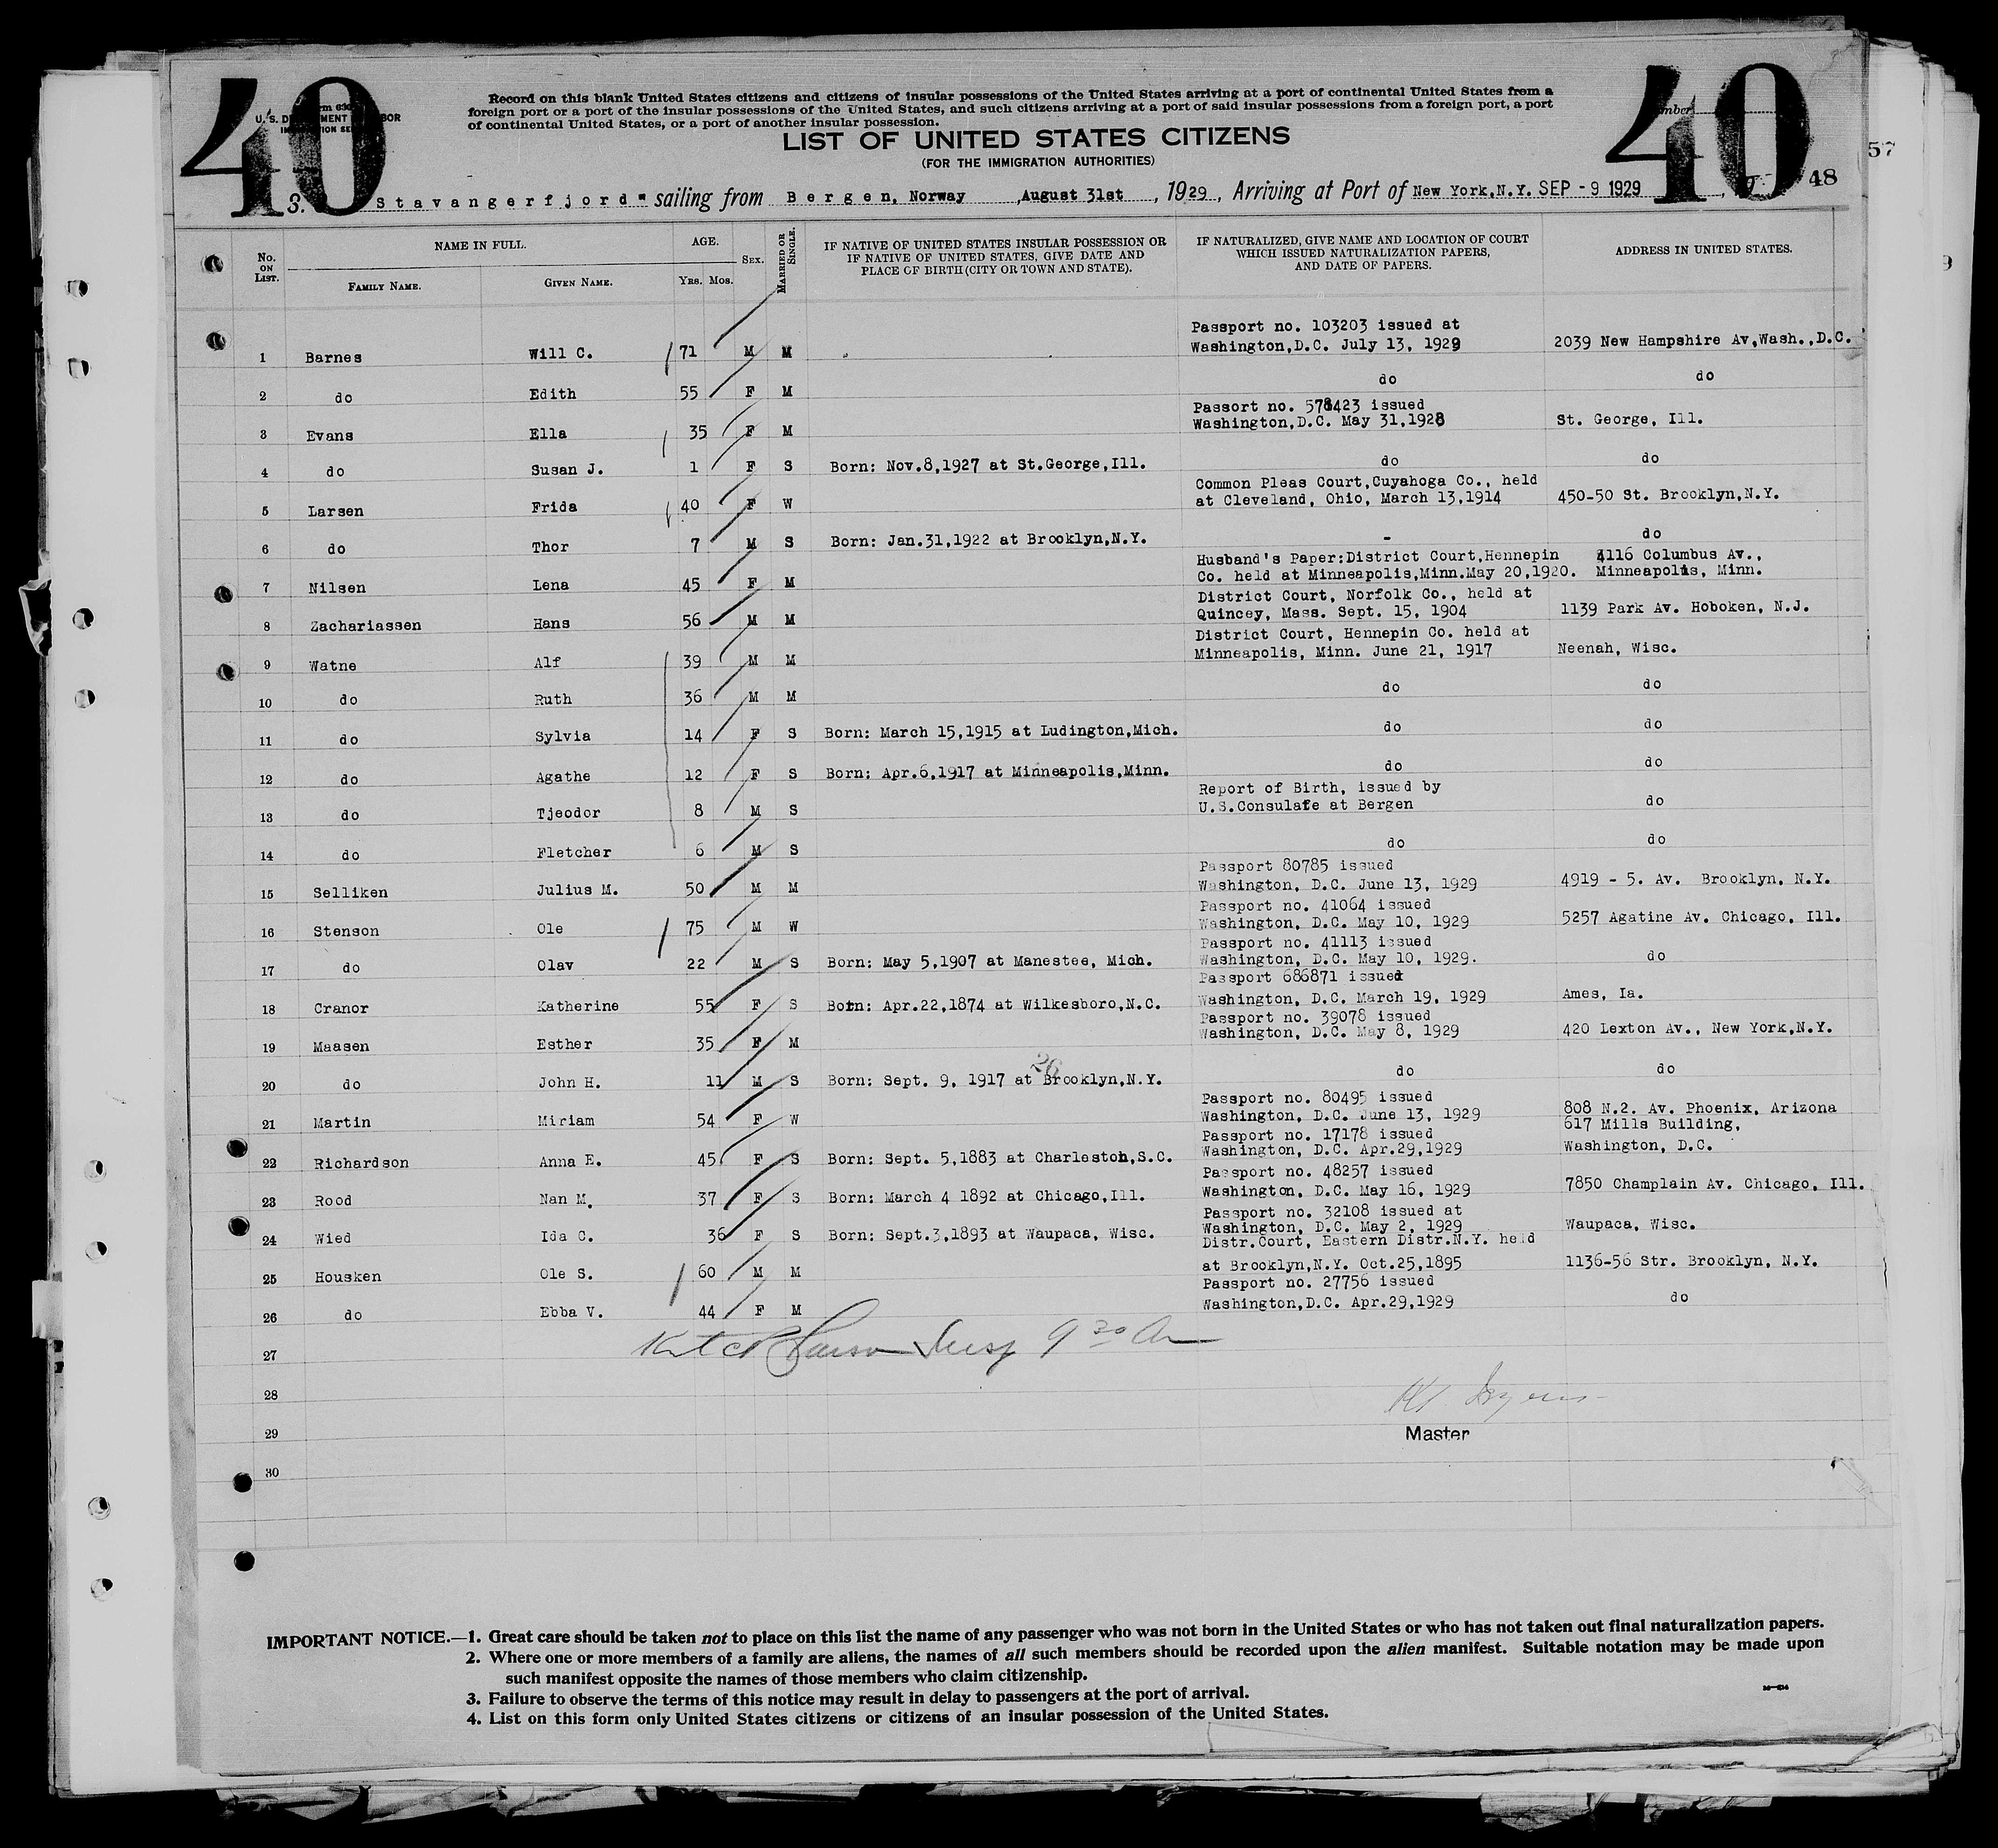 40
40
U. S. D MENT BOR
Record on this blank United States citizens and citizens of insular possessions of the United States arriving at a port of continental United States from a
foreign port or a port of the insular possessions of the United States, and such citizens arriving at a port of said insular possessions from a foreign port, a port
of continental United States, or a port of another insular possession.
LIST OF UNITED STATES CITIZENS
(FOR THE IMMIGRATION AUTHORITIES)
57
48
S. Stavangerfjord" sailing from Bergen, Norway ,August 31st , 1929 , Arriving at Port of New York,N.Y. SEP - 9 1929
No. ON LIST. NAME IN FULL. FAMILY NAME. GIVEN NAME. AGE. YRS. MOS. SEX. MARRIED OR SINGLE. IF NATIVE OF UNITED STATES INSULAR POSSESSION OR IF NATIVE OF UNITED STATES, GIVE DATE AND PLACE OF BIRTH (CITY OR TOWN AND STATE). IF NATURALIZED, GIVE NAME AND LOCATION OF COURT WHICH ISSUED NATURALIZATION PAPERS, AND DATE OF PAPERS. ADDRESS IN UNITED STATES.
1 Barnes Will C. 71 M M Passport no. 103203 issued at Washington,D.C. July 13, 1929 2039 New Hampshire Av,Wash.,D.C.
2 do Edith 55 F M do do
3 Evans Ella 35 F M Passort no. 578423 issued Washington,D.C. May 31,1928 St. George, Ill.
4 do Susan J. 1 F S Born: Nov.8,1927 at St.George,Ill. do do
5 Larsen Frida 40 F W Common Pleas Court,Cuyahoga Co., held at Cleveland, Ohio, March 13,1914 450-50 St. Brooklyn,N.Y.
6 do Thor 7 M S Born: Jan.31,1922 at Brooklyn,N.Y. - do
7 Nilsen Lena 45 F M Husband's Paper:District Court,Hennepin Co. held at Minneapolis,Minn.May 20,1920. 4116 Columbus Av., Minneapolis, Minn.
8 Zachariassen Hans 56 M M District Court, Norfolk Co., held at Quincey, Mass. Sept. 15, 1904 1139 Park Av. Hoboken, N.J.
9 Watne Alf 39 M M District Court, Hennepin Co. held at Minneapolis, Minn. June 21, 1917 Neenah, Wisc.
10 do Ruth 36 M M do do
11 do Sylvia 14 F S Born: March 15,1915 at Ludington,Mich. do do
12 do Agathe 12 F S Born: Apr.6,1917 at Minneapolis,Minn. do do
13 do Tjeodor 8 M S Report of Birth, issued by U.S.Consulate at Bergen do
14 do Fletcher 6 M S do do
15 Selliken Julius M. 50 M M Passport 80785 issued Washington, D.C. June 13, 1929 4919 - 5. Av. Brooklyn, N.Y.
16 Stenson Ole 75 M W Passport no. 41064 issued Washington, D.C. May 10, 1929 5257 Agatine Av. Chicago, Ill.
17 do Olav 22 M S Born: May 5,1907 at Manestee, Mich. Passport no. 41113 issued Washington, D.C. May 10, 1929. do
18 Cranor Katherine 55 F S Born: Apr.22,1874 at Wilkesboro,N.C. Passport 686871 issued Washington, D.C. March 19, 1929 Ames, Ia.
19 Maasen Esther 35 F M Passport no. 39078 issued Washington, D.C. May 8, 1929 420 Lexton Av., New York,N.Y.
20 do John H. 11 M S Born: Sept. 9, 1917 at Brooklyn,N.Y. do do
26
21 Martin Miriam 54 F W Passport no. 80495 issued Washington, D.C. June 13, 1929 808 N.2. Av. Phoenix, Arizona
22 Richardson Anna E. 45 F S Born: Sept. 5,1883 at Charleston,S.C. Passport no. 17178 issued Washington, D.C. Apr.29,1929 617 Mills Building, Washington, D.C.
23 Rood Nan M. 37 F S Born: March 4 1892 at Chicago,Ill. Passport no. 48257 issued Washington, D.C. May 16, 1929 7850 Champlain Av. Chicago, Ill.
24 Wied Ida C. 36 F S Born: Sept.3,1893 at Waupaca, Wisc. Passport no. 32108 issued at Washington, D.C. May 2, 1929 Waupaca, Wisc.
25 Housken Ole S. 60 M M Distr.Court, Eastern Distr.N.Y. held at Brooklyn,N.Y. Oct.25,1895 1136-56 Str. Brooklyn, N.Y.
26 do Ebba V. 44 F M Passport no. 27756 issued Washington,D.C. Apr.29,1929 do
27
28
29 Master
30
IMPORTANT NOTICE.—1. Great care should be taken not to place on this list the name of any passenger who was not born in the United States or who has not taken out final naturalization papers.
2. Where one or more members of a family are aliens, the names of all such members should be recorded upon the alien manifest. Suitable notation may be made upon
such manifest opposite the names of those members who claim citizenship.
3. Failure to observe the terms of this notice may result in delay to passengers at the port of arrival.
4. List on this form only United States citizens or citizens of an insular possession of the United States.